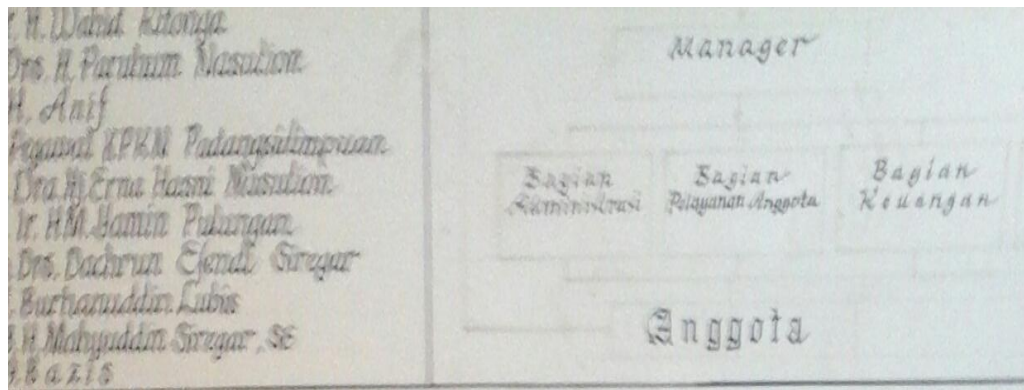 H. Wahid Ritonga
Drs. H. Parubum Nasution
H. Anif
Pegawai KPKM Padangsidimpuan
Dra. Hj. Erna Hasni Nasution
Ir. HM. Yamin Pulungan
Drs. Dachrun Efendi Siregar
Burhanuddin Lubis
H. Mahyuddin Siregar, SE
Bazis
Manager
Bagian
Administrasi
Bagian
Pelayanan Anggota
Bagian
Keuangan
Anggota